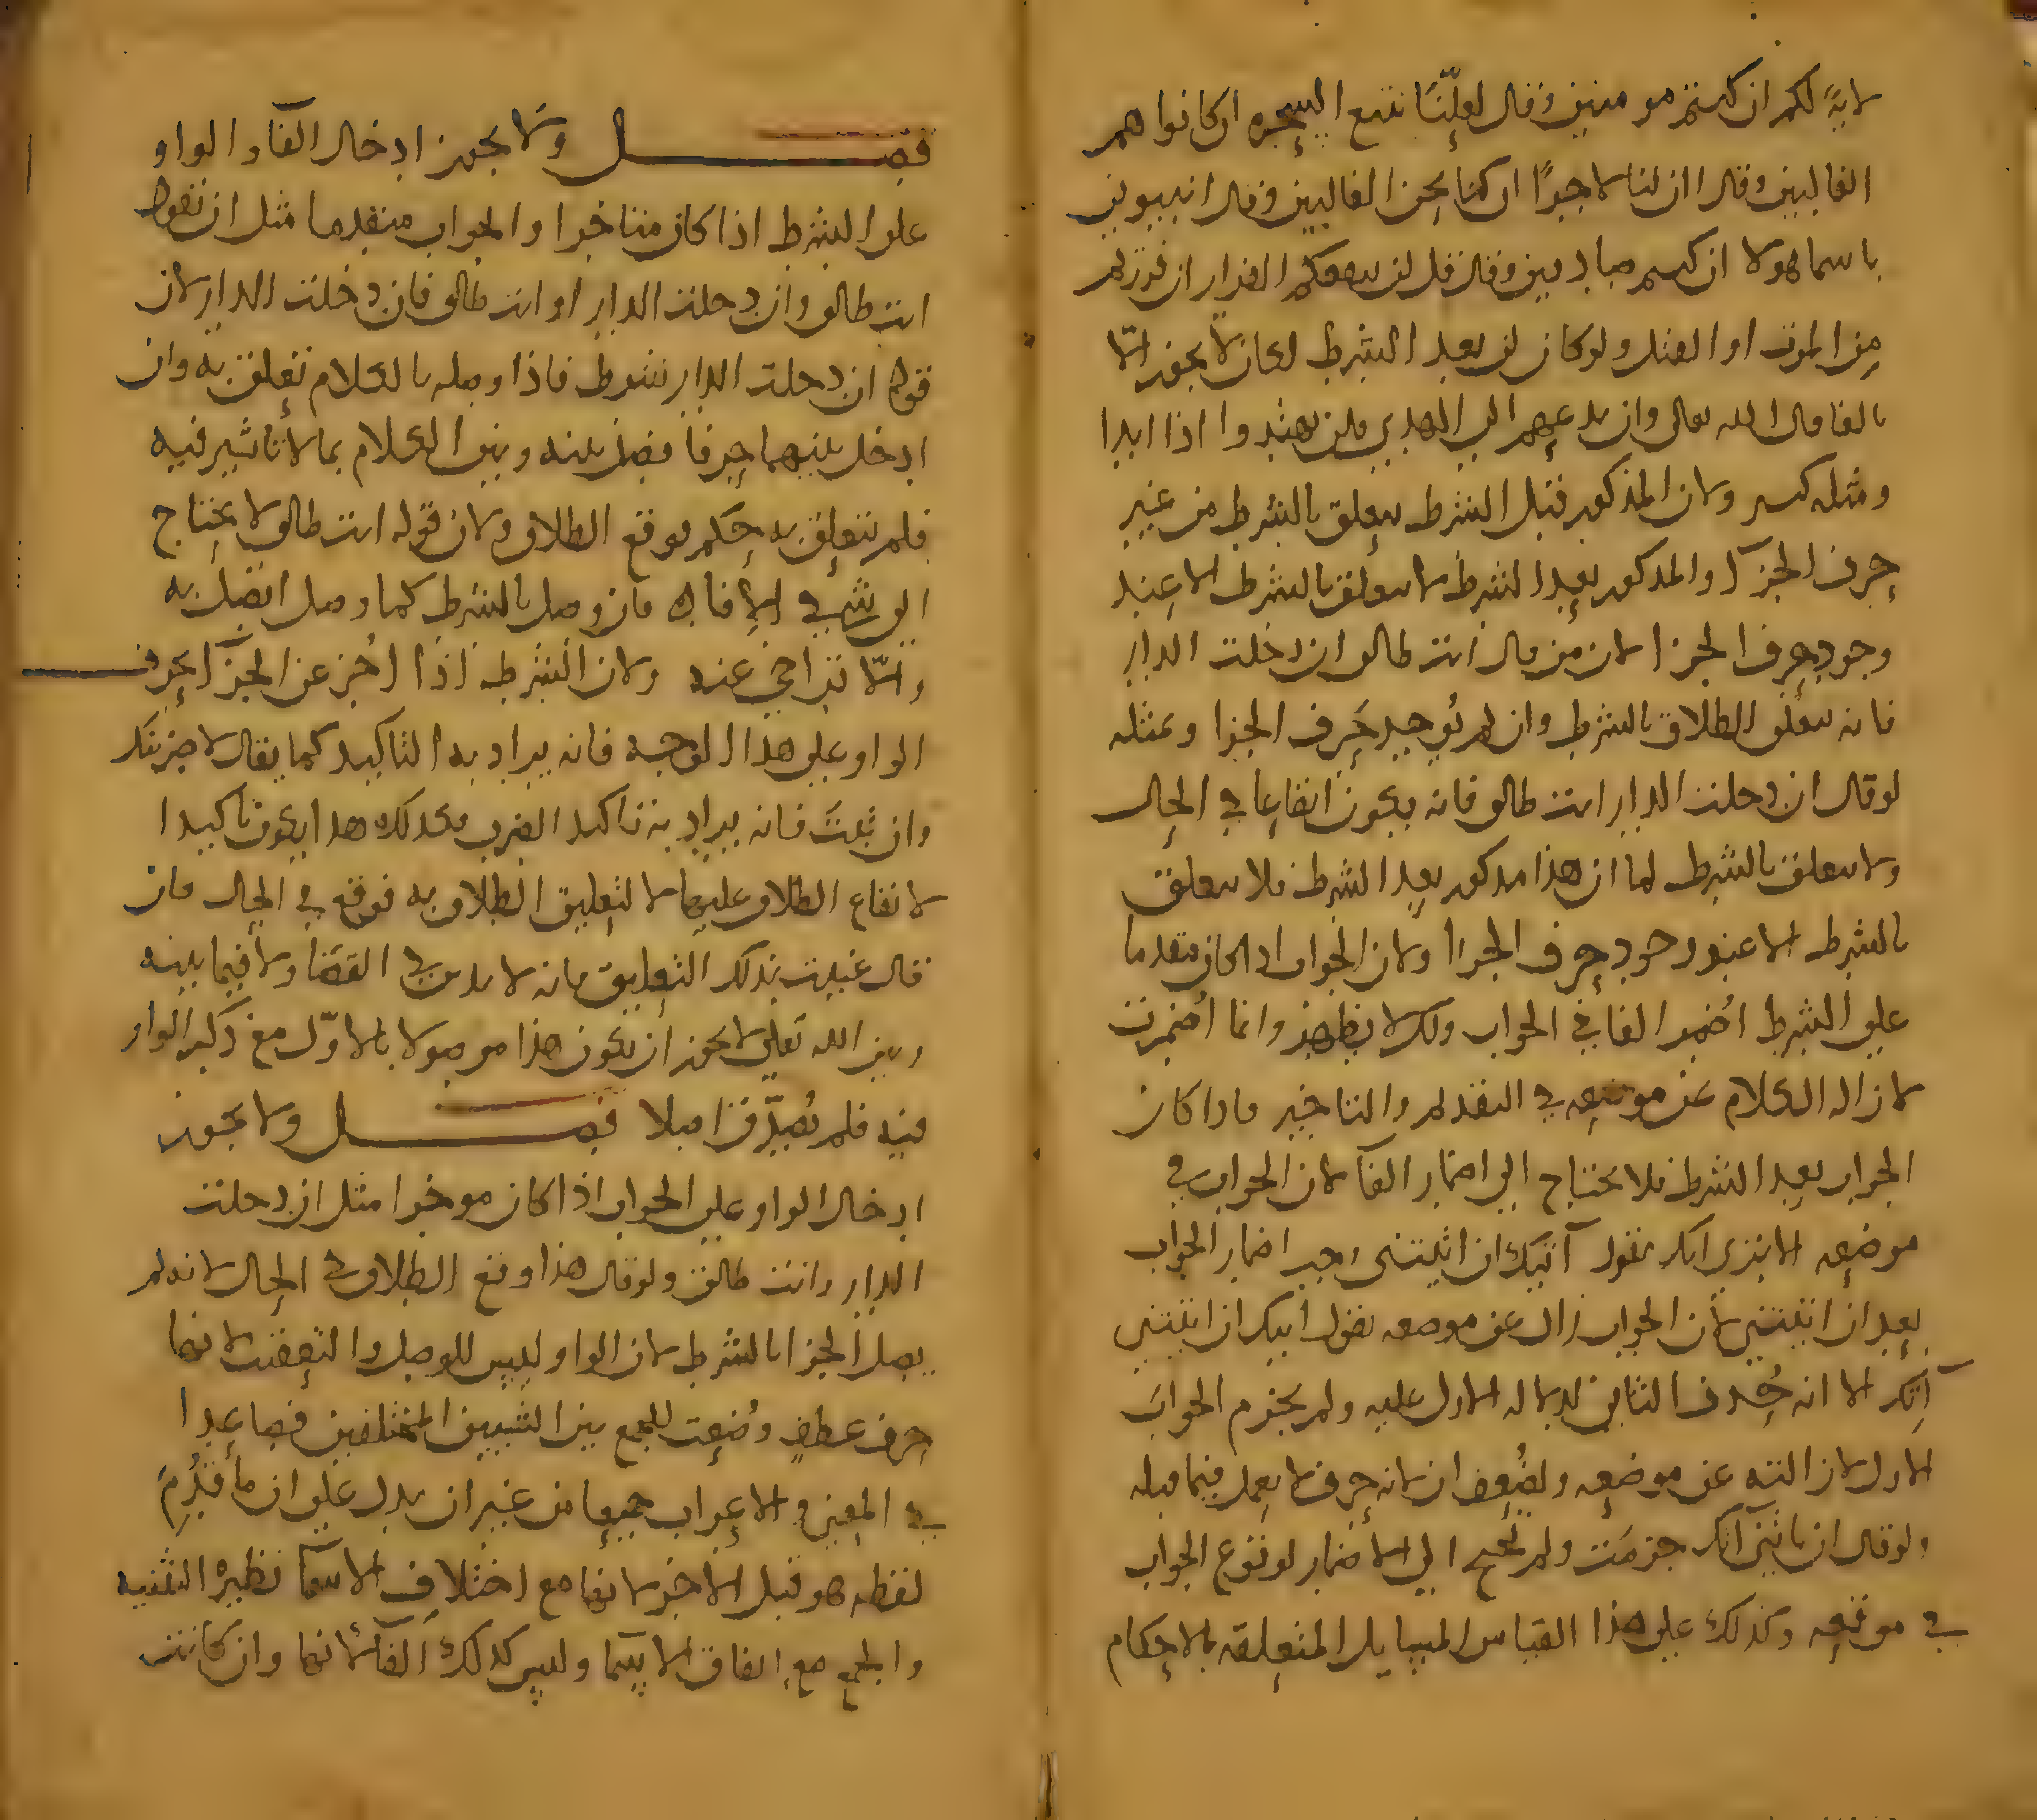 لايةً لكم ان كنتم مومنين وقال لعلّنا نتبع السحره ان كانوا هم
الغالبين وقال ان لنا لاجرًا ان كنا نحن الغالبين وقال انبيوني
باسما هولا ان كنتم صادقين وقال قل لن ينفعكم الفرار ان فررتم
من الموت او القتل ولو كان لن بعد الشرط لكان لا يجوز الّا
بالفا قال الله تعالى وان تدعهم الى الهدى فلن يهتدوا اذا ابدا
ومثله كثير ولان المذكور قبل الشرط يتعلق بالشرط من غير
حرف الجزآ والمذكور بعد الشرط لا يتعلق بالشرط الا عند
وجود حرف الجزا لان من قال انت طالق ان دخلت الدار
فانه يتعلق الطلاق بالشرط وان لم يُوجد حَرف الجزا وبمثله
لو قال ان دخلت الدار انت طالق فانه يكون ايقاعا في الحال
ولا يتعلق بالشرط لما ان هذا مذكور بعد الشرط فلا يتعلق
بالشرط الا عند وجود حرف الجزا ولان الجواب اذا كان متقدما
على الشرط اُضمر الفا في الجواب ولكن لا يظهر وانما اُضمرت
لازاله الكلام عن موضعه في التقديم والتاخير فاذا كان
الجواب بعد الشرط فلا يحتاج الى اضمار الفآ لان الجواب في
موضعه الا ترى انك تقول آتيك ان اتيتني وجب اضمار الجواب
بعد ان اتيتني لان الجواب زال عن موضعه تقول اتيك ان اتيتني
آتك الا انه حُذف الثاني لدلاله الاول عليه ولم يجزم الجوابَ
الاول لازالته عن موضعه ولضُعف ان لانه حرف لا يعمل فيما قبله
ولو قال ان تاتني آتك جزمَت ولم تحتج الى الاضمار لوقوع الجواب
في موقعه وكذلك على هذا القياس المسايل المتعلقه بالاحكام
فصل ولا يجوز ادخال الفآ والواو
على الشرط اذا كان متاخرا والجواب متقدما مثل ان تقول
انت طالق وان دخلت الدار او انت طالق فان دخلت الدار لان
قوله ان دخلت الدار شرط فاذا وصله بالكلام تعلق به وان
ادخل بينهما حرفا فصل بينه وبين الكلام بما لا تاثير فيه
فلم يتعلق به حكم فوقع الطلاق ولان قوله انت طالق لا يحتاج
الى شي في الافاده فان وصل بالشرط كما وصل اتصل به
والّا تراخى عنه ولان الشرط اذا اُخر عن الجزآ بحرف
الواو على هذا الوجه فانه يراد به التاكيد كما يقال لاضربنك
وان تُبتَ فانه يراد به تاكيد الضرب فكذلك هذا يكون تاكيدا
لايقاع الطلاق عليها لا لتعليق الطلاق به فوقع في الحال فان
قال عنيت بذلك التعليق فانه لا يدين في القضا ولا فيما بينه
وبين الله تعلى لا يجوز ان يكون هذا موصولا بالاوّل مع ذكر الواو
فيه فلم يُصدّق اصلا فصل ولا يجوز
ادخال الواو على الجواب اذا كان موخرا مثل ان دخلت
الدار وانت طالق ولو قال هذا وقع الطلاق في الحال لانه لم
يصل الجزا بالشرط لان الواو ليس للوصل والتعقيب لانها
حرف عطف وُضعت للجمع بين الشيين المختلفين فصاعدا
في المعنى والاعراب جميعا من غير ان يدل على ان ما قُدِمَ
لفظه هو قبل الاخر لانها مع اختلاف الاسمآ نظيره التثنيه
والجمع مع اتفاق الاسمآ وليس كذلك الفآ لانها وان كانت